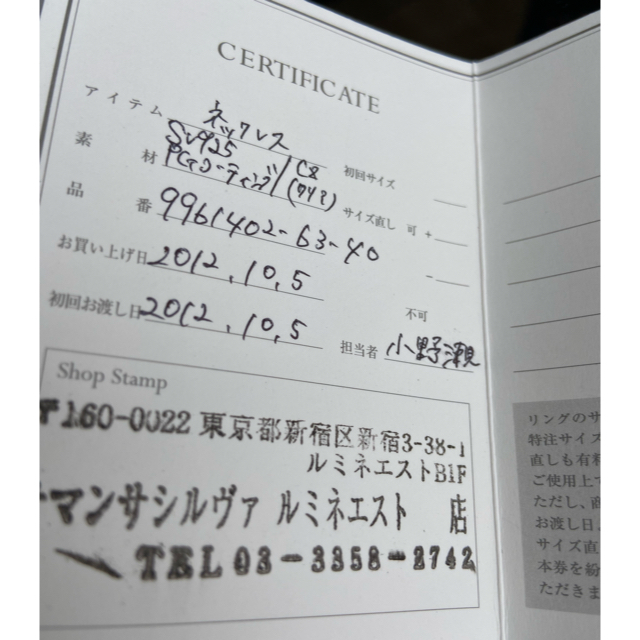 CERTIFICATE
アイテム ネックレス
素材 SV925/CZ 初回サイズ
PGコーティング/(クリア) サイズ直し 可 +
品番 9961402-63-40 -
お買い上げ日 2012.10.5 不可
初回お渡し日 2012.10.5 担当者 小野瀬
Shop Stamp
〒160-0022 東京都新宿区新宿3-38-1
ルミネエストB1F
マンサシルヴァ ルミネエスト 店
TEL 03-3358-2742
リングのサ
特注サイズ
直しも有料
ご使用上で
ただし、商
お渡し日、
サイズ直
本券を紛
ただきま